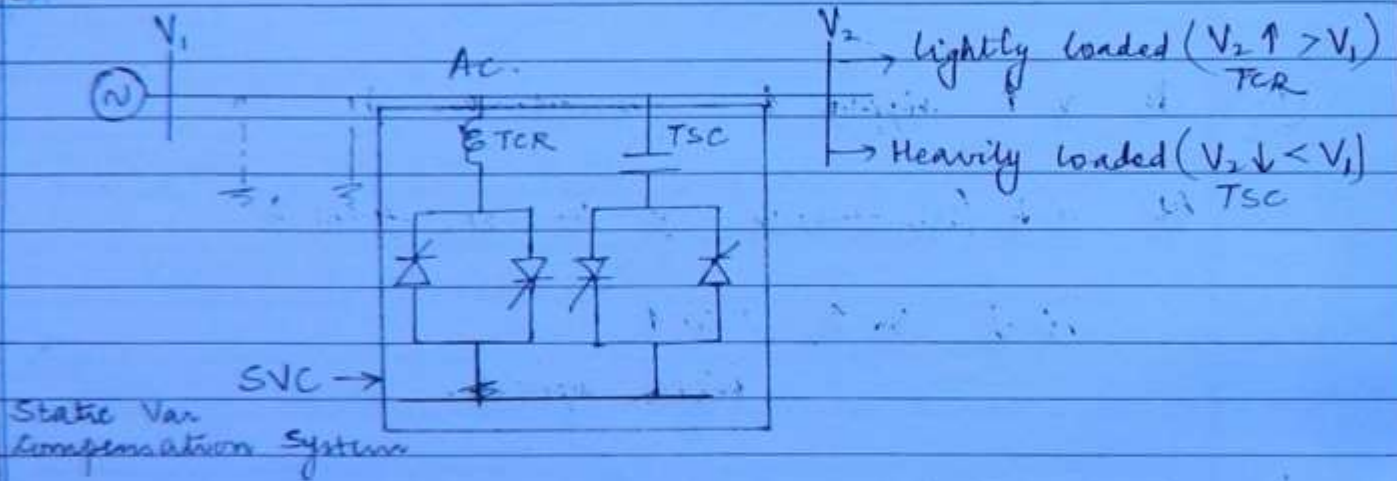 V₁
V₂
Lightly loaded (V₂ ↑ > V₁)
TCR
AC.
TCR
TSC
Heavily loaded (V₂ ↓ < V₁)
TSC
SVC →
Static Var
Compensation System